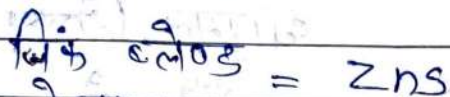 जिंक ब्लेण्ड = ZnS